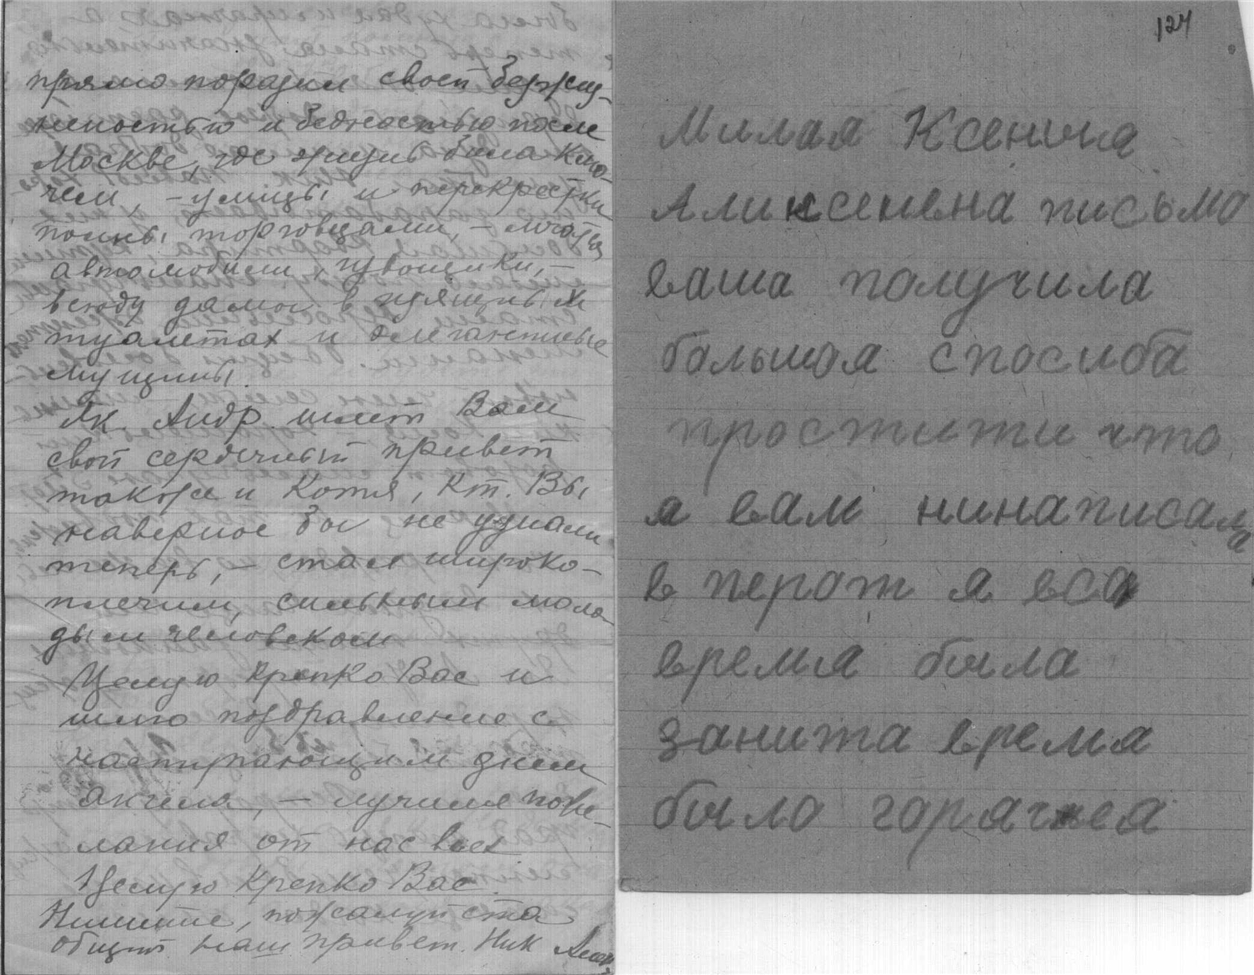 прямо поразил своей безжиз-
ненностью и бедностью после
Москве, где жизнь била клю-
чем, – улицы и перекрестки
полны торговцами, –
автомобили, извощики, –
всюду дамы в изящных
туалетах и элегантные
мущины.
Як. Андр. шлет Вам
свой сердечный привет
также и Котя, Кт. Вы
наверное бы не узнали
теперь, – стал широко-
плечим, сильным моло-
дым человеком
Целую крепко Вас и
шлю поздравление с
наступающим днем
ангела, – лучшие поже-
лания от нас всех
Целую крепко Вас.
Пишите, пожалуйста
общий наш привет. Ник
127
Милая Ксения
Аликсеевна письмо
ваша получила
большоя спосиба
простити что
я вам нинаписала
в перот я вса
время была
занита время
было горячея